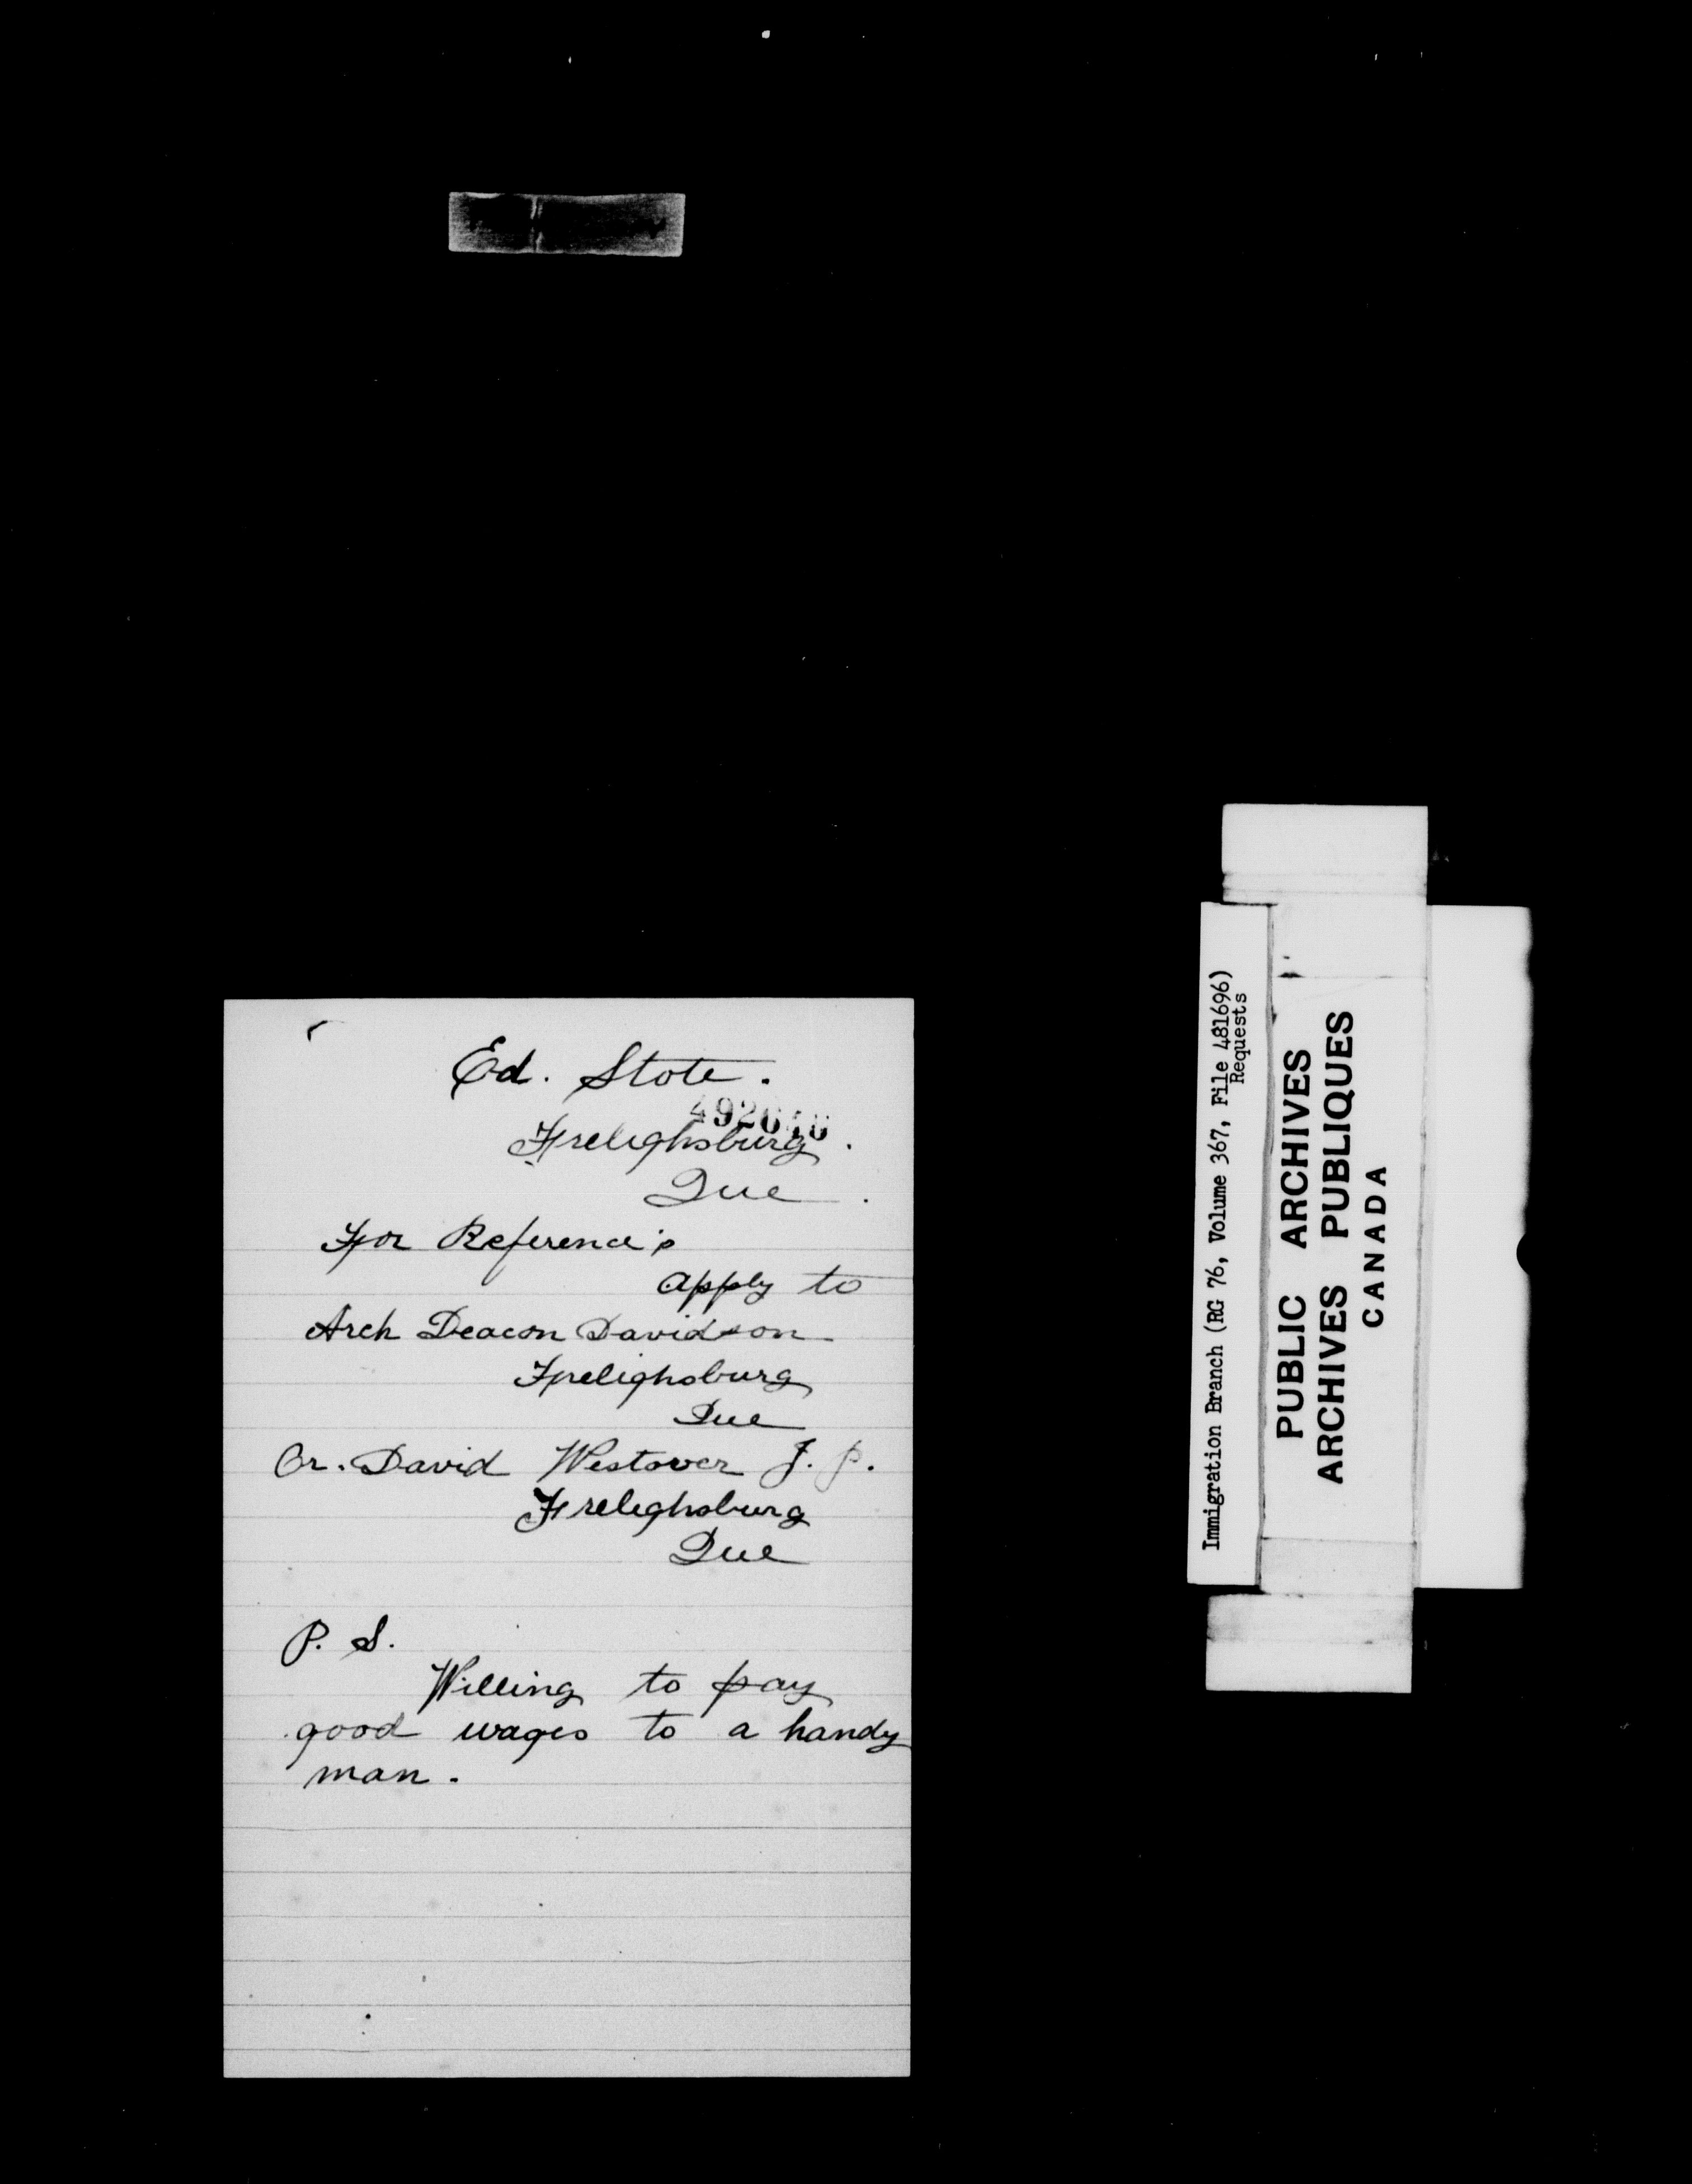 Ed. Stote.
Frelighsburg.
Que.
For Reference's
apply to
Arch Deacon Davidson
Frelighsburg
Que
Or. David Westover J. P.
Frelighsburg
Que
P. S.
Willing to pay
good wages to a handy
man.
Immigration Branch (RG 76, Volume 367, File 481696)
Requests
PUBLIC ARCHIVES
ARCHIVES PUBLIQUES
CANADA